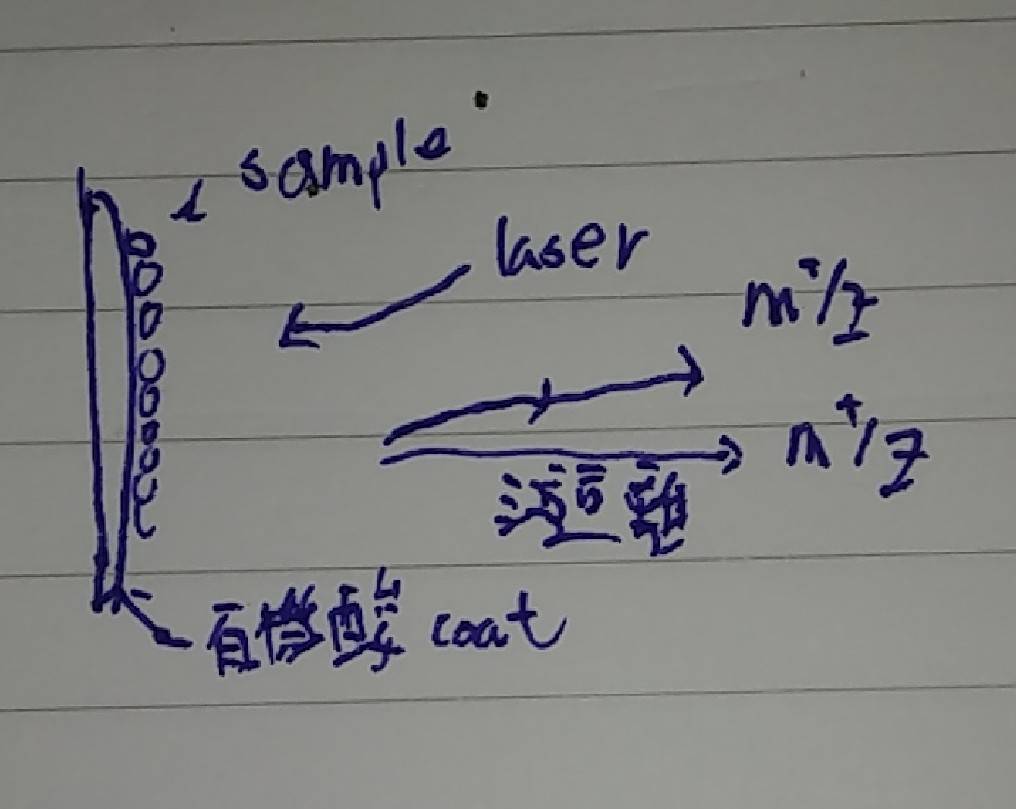 sample
laser
m⁺/z
m⁺/z
有機酸 coat